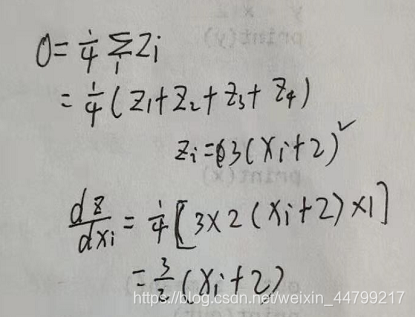 O = 1/4 Σ_i Zi
= 1/4 (Z1 + Z2 + Z3 + Z4)
Zi = 3(Xi+2)²
dz/dxi = 1/4 [3×2(Xi+2)×1]
= 3/2 (Xi+2)
https://blog.csdn.net/weixin_44799217